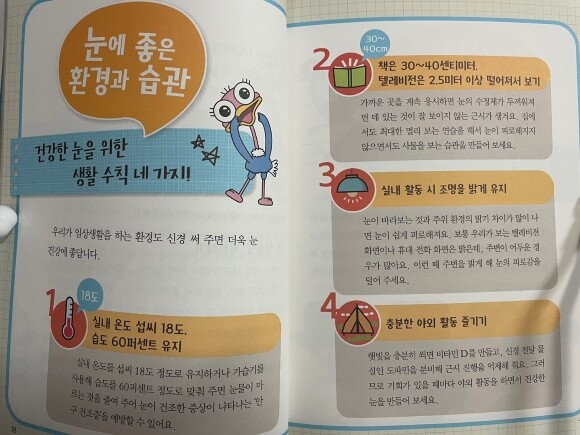 눈에 좋은
환경과 습관
건강한 눈을 위한
생활 수칙 네 가지!
우리가 일상생활을 하는 환경도 신경 써 주면 더욱 눈
건강에 좋답니다.
1
18도
실내 온도 섭씨 18도.
습도 60퍼센트 유지
실내 온도를 섭씨 18도 정도로 유지하거나 가습기를
사용해 습도를 60퍼센트 정도로 맞춰 주면 눈물이 마
르는 것을 줄여 주어 눈이 건조한 증상이 나타나는 '안
구 건조증'을 예방할 수 있어요.
18
30~
40cm
2
책은 30~40센티미터,
텔레비전은 2.5미터 이상 떨어져서 보기
가까운 곳을 계속 응시하면 눈의 수정체가 두꺼워져
먼 데 있는 것이 잘 보이지 않는 근시가 생겨요. 집에
서도 최대한 멀리 보는 연습을 해서 눈이 피로해지지
않으면서도 사물을 보는 습관을 만들어 보세요.
3
실내 활동 시 조명을 밝게 유지
눈이 바라보는 것과 주위 환경의 밝기 차이가 많이 나
면 눈이 쉽게 피로해져요. 보통 우리가 보는 텔레비전
화면이나 휴대 전화 화면은 밝은데, 주변이 어두운 경
우가 많아요. 이런 때 주변을 밝게 해 눈의 피로감을
덜어 주세요.
4
충분한 야외 활동 즐기기
햇빛을 충분히 쬐면 비타민 D를 만들고, 신경 전달 물
질인 도파민을 분비해 근시 진행을 억제해 줘요. 그러
므로 기회가 있을 때마다 야외 활동을 하면서 건강한
눈을 만들어 보세요.